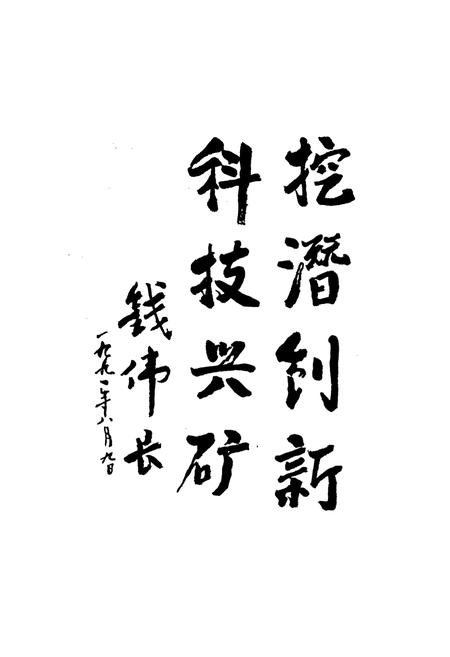 挖潜创新
科技兴矿
錢伟长
一九九一年八月九日